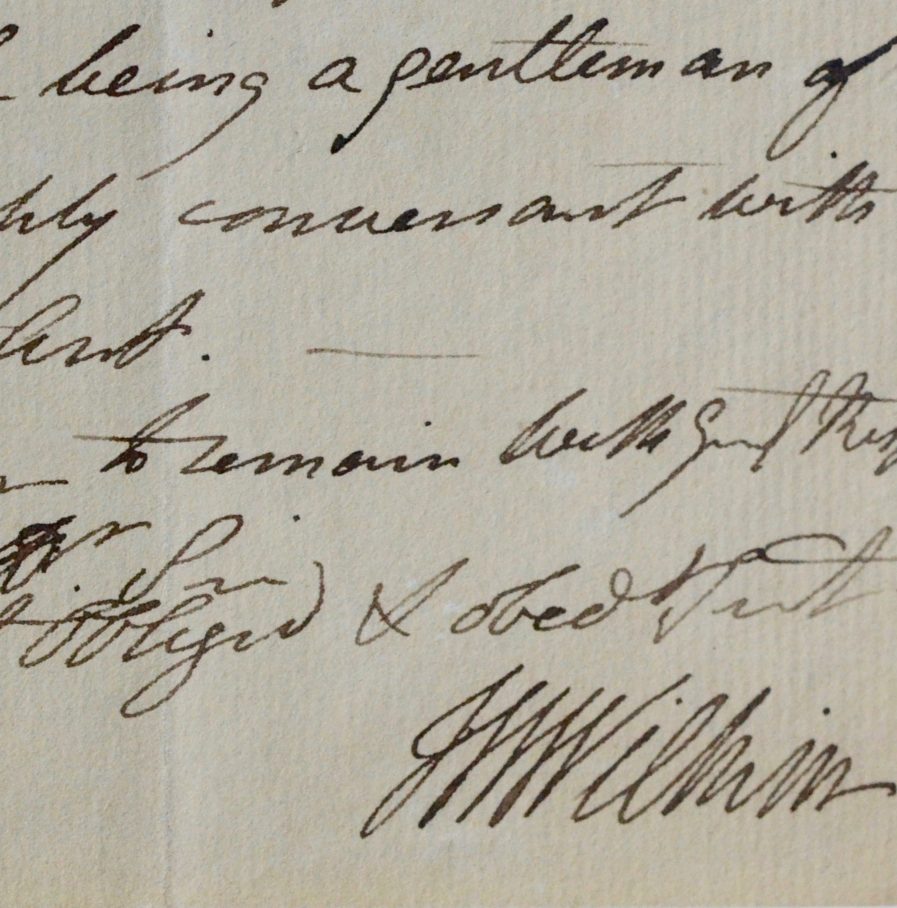 being a gentleman of
hly conversant with
to remain with great Resp
Sir
obliged & obed Sert